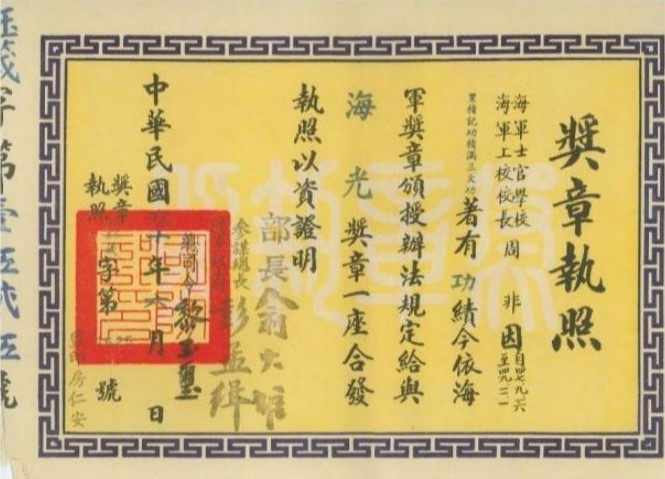 獎章執照
海軍士官學校
海軍上校校長周 非因自四七九六至四九一二一
累積記功積滿三大功著有功績今依海
軍獎章頒授辦法規定給與
海光獎章一座合發
執照以資證明
部長俞大維
參謀總長彭孟緝
總司令黎玉璽
中華民國 十年 月 日
獎章
執照 字第 號
房仁安
字第壹伍貳伍號